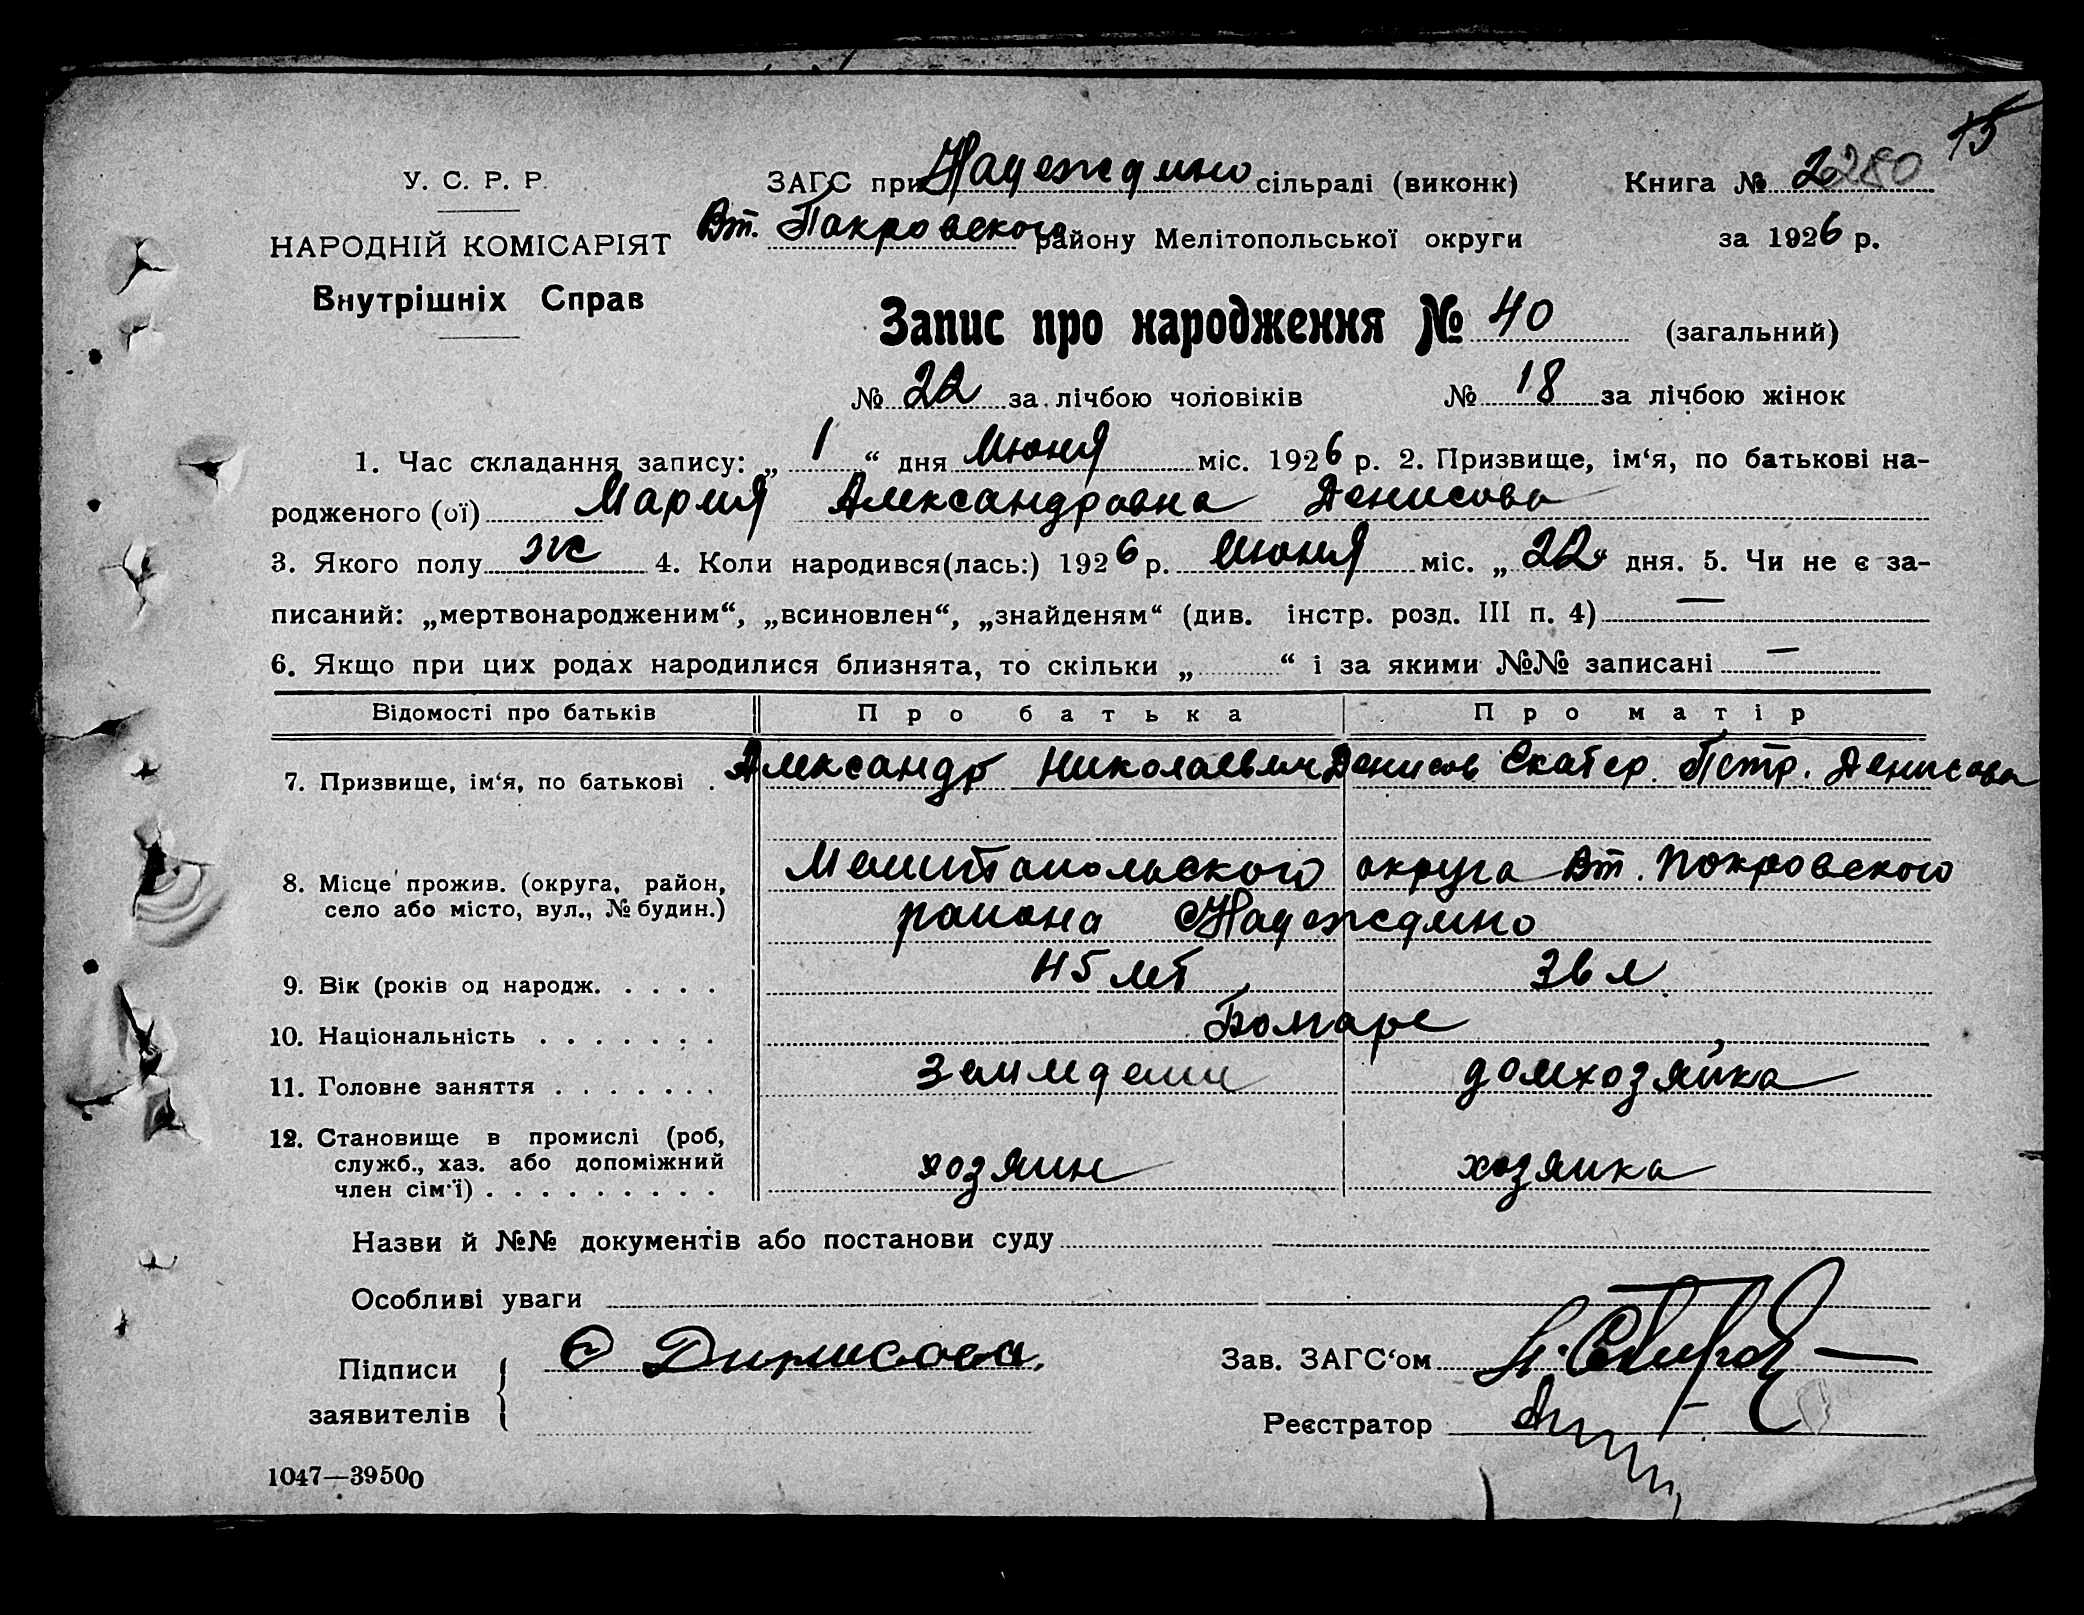 15
У. С. Р. Р.
НАРОДНІЙ КОМІСАРІЯТ
Внутрішніх Справ
ЗАГС при Надеждино сільраді (виконк)
Вт. Пакровского району Мелітопольської округи
Книга № 2 280
за 1926 р.
Запис про народження № 40 (загальний)
№ 22 за лічбою чоловіків № 18 за лічбою жінок
1. Час складання запису: „ 1 “ дня Июня міс. 1926 р. 2. Призвище, ім‘я, по батькові на-
родженого (ої) Мария Александровна Денисова
3. Якого полу ж 4. Коли народився(лась:) 1926 р. Июня міс. „ 22 “ дня. 5. Чи не є за-
писаний: „мертвонародженим“, „всиновлен“, „знайденям“ (див. інстр. розд. III п. 4) —
6. Якщо при цих родах народилися близнята, то скільки „ “ і за якими №№ записані —
Відомості про батьків Про батька Про матір
7. Призвище, ім‘я, по батькові . Александр Николаевич Денисов Екатер. Петр. Денисова
8. Місце прожив. (округа, район, Мелитопольского округа Вт. Покровского
село або місто, вул., № будин.) района Надеждино
9. Вік (років од народж. . . . . 45 лет 36 л.
10. Національність . . . . . . . Болгаре
11. Головне заняття . . . . . . . Землдели домхозяйка
12. Становище в промислі (роб,
служб., хаз. або допоміжний хозяин хозяика
член сім‘ї) . . . . . . . . .
Назви й №№ документів або постанови суду
Особливі уваги
Підписи
заявителів
Зав. ЗАГС‘ом
Реєстратор
1047—39500